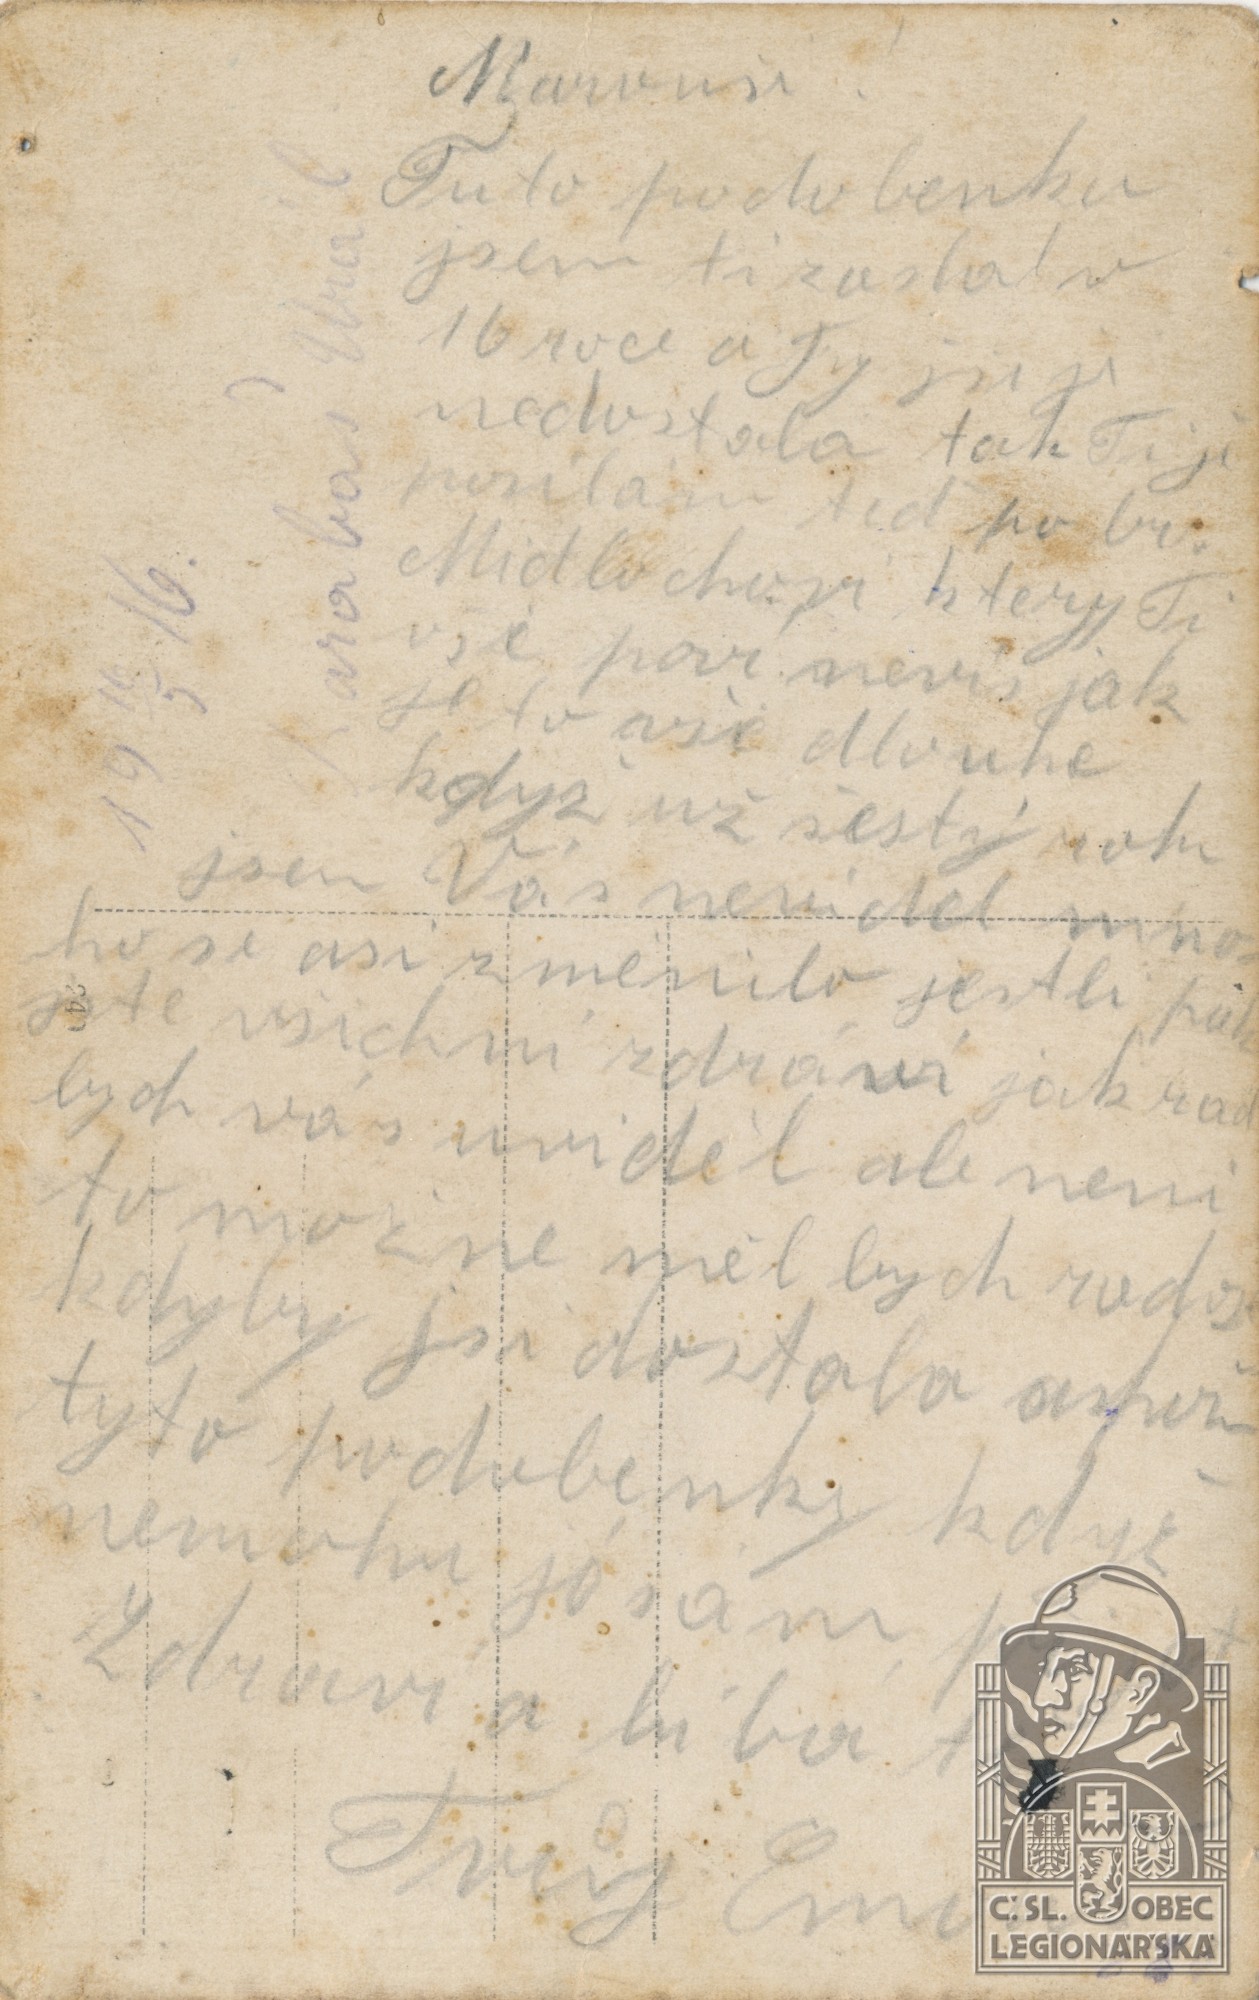 Marouši !
Tuto podobenku
jsem ti zaslal v
16 roce a Ty jsi ji
nedostala tak Ti ji
posílám teď po br.
Midlochovi ktery Ti
vše poví nevíš jak
je to vše dlouhe
když už šestý rok
jsem Vás neviděl mno
ho se asi změnilo jestli pak
jste všichni zdrávi jak rad
byh vás uviděl ale neni
to možne měl bych rados
kdyby jsi dostala aspoň
tyto podobenky když
nemohu já sám
Zdraví a líbá
Tvůj Em
Ural
19 10/5 16.
241
Č. SL. OBEC
LEGIONÁŘSKÁ